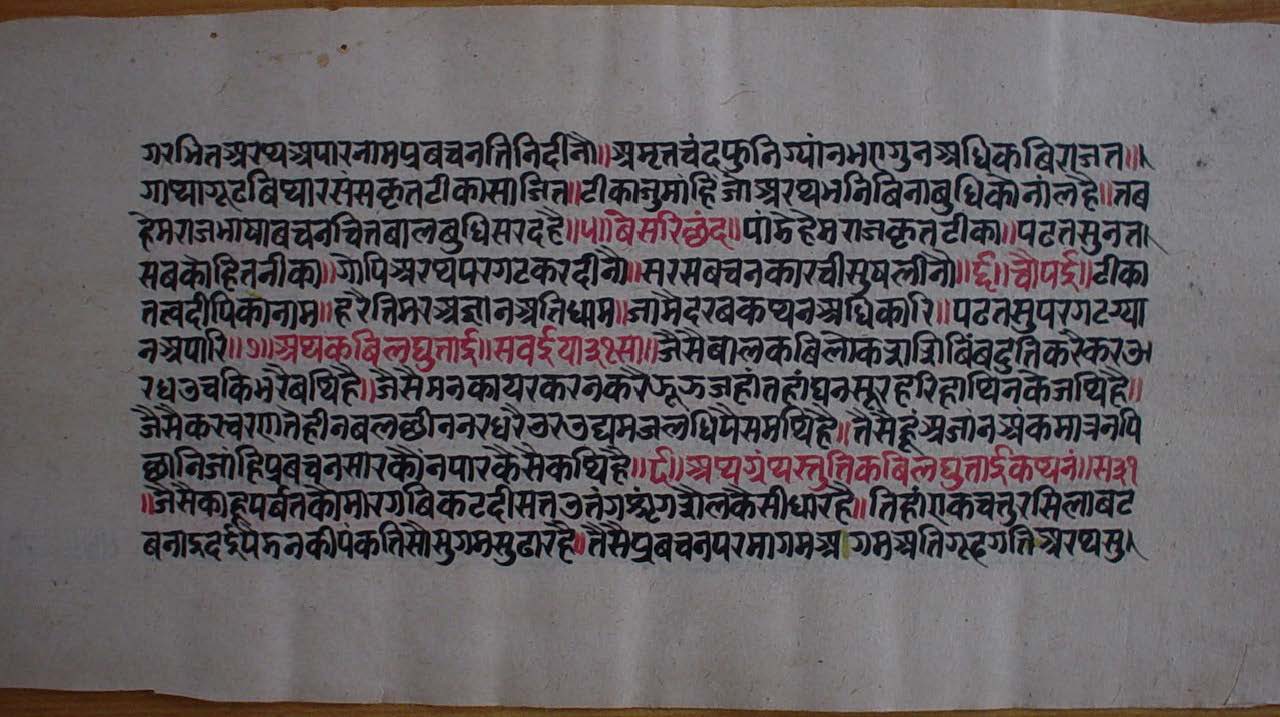 गरभित अरथ अपार नाम प्रबचन तिनि दीनौ॥ अमृतचंद फुनि ग्यांन भए गुन अधिक बिराजत॥
गाथा गूढ बिथार संसकृत टीका साजित॥ टीका जु मांहि जो अरथ भनि बिना बुधि को ना लहै॥ तब
हेमराज भाषा बचन चित बालबुधि सरदहै॥५॥ बेसरि छंद॥ पांडे हेमराज कृत टीका॥ पढत सुनत
सबको हित नीका॥ गोपि अरथ परगट कर दीनौ॥ सरस बचनका रची सुष लीनौ॥६॥ चौपई॥ टीका
तत्वदीपिका नाम॥ हरै तिमर अज्ञान अति धाम॥ जामै दरब कथन अधिकारि॥ पढत सु परगट ग्या
न अपारि॥७॥ अथ कबि लघुताई॥ सवईया ३१ सा॥ जैसे बालक बिलोक बिंब दुति कर
जैसै मन कायर कर न करै जहां तहां घन सूर हरि हाथिन कै जथि है॥
जैसै कर चरण तै हीन बल छीन नर धरै उर उद्यम जलधि पै समथि है॥ तैसै हूं अजांन अंक मात्र न पि
छांनि जांहि प्रबचनसार कौं न पार कैसै कथि है॥८॥ अथ ग्रंथ स्तुति कबि लघुताई कथनं॥ स ३१
॥जैसै काहू पर्बत को मारग बिकट दीसत उतंग शृंग कै सी धार है॥ तिहां एक चतुर सिलाबट
बनाइ दई पैडन की पंकति सौ सुगम सुढार है॥ तैसै प्रबचन परमागम अगम अति गूढ गति अरथ सु